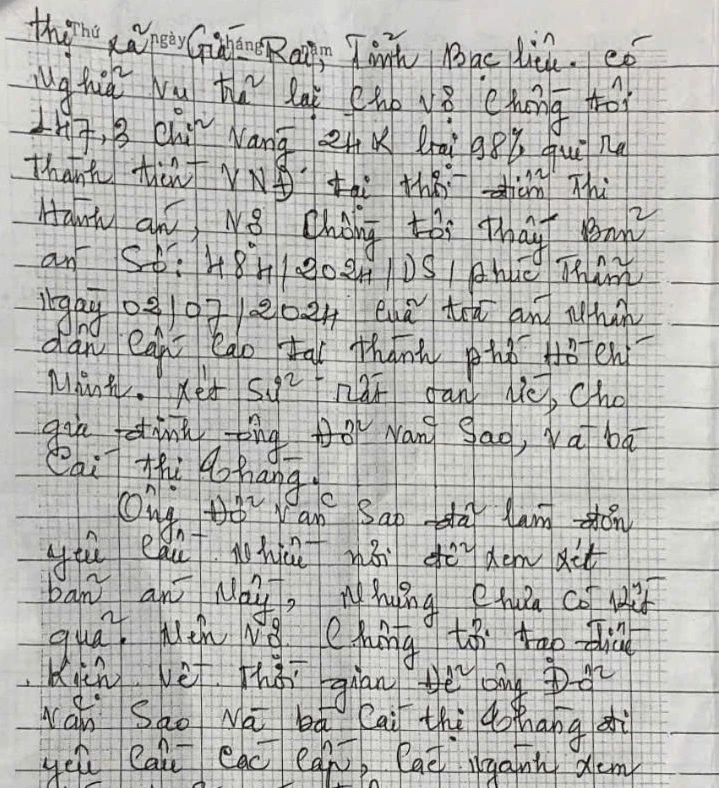 thị xã Giá Rai, Tỉnh Bạc liêu. có
Nghĩa vụ trả lại cho vợ chồng tôi
147,3 chỉ vàng 24K loại 98% qui ra
thành tiền VNĐ tại thời điểm Thi
Hành án, vợ chồng tôi thấy Bản
án Số: 484/2024/DS/phúc Thẩm
ngày 02/07/2024 của toà án nhân
dân cấp cao tại thành phố Hồ chí
Minh. xét sử rất oan ức, cho
gia đình ông Đỗ văn Sao, và bà
Cai thị Phang.
Ông Đỗ văn Sao đã làm đơn
yêu cầu nhiều nơi để xem xét
bản án này, nhưng chưa có kết
quả. nên vợ chồng tôi tạo điều
kiện về thời gian để ông Đỗ
văn Sao và bà Cai thị Phang đi
yêu cầu các cấp, các ngành xem